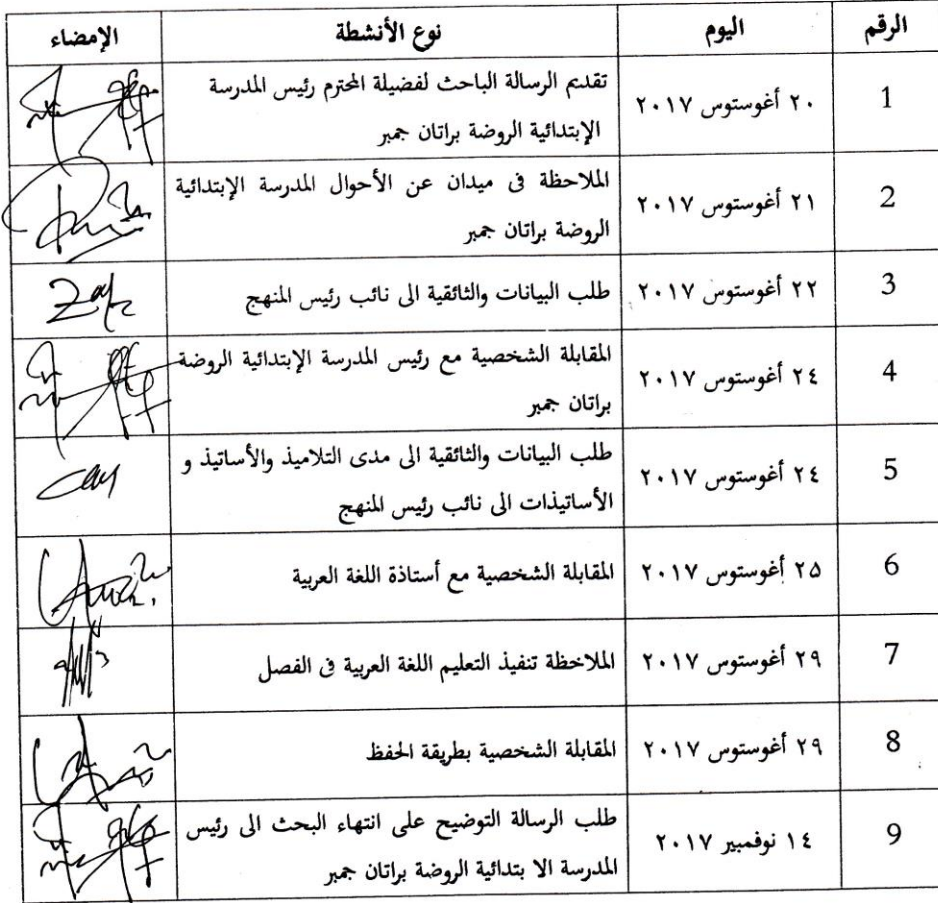 الرقم اليوم نوع الأنشطة الإمضاء
1 ٢٠ أغوستوس ٢٠١٧ تقديم الرسالة الباحث لفضيلة المحترم رئيس المدرسة
الإبتدائية الروضة براتان جمبر
2 ٢١ أغوستوس ٢٠١٧ الملاحظة فى ميدان عن الأحوال المدرسة الإبتدائية
الروضة براتان جمبر
3 ٢٢ أغوستوس ٢٠١٧ طلب البيانات والثائقية الى نائب رئيس المنهج
4 ٢٤ أغوستوس ٢٠١٧ المقابلة الشخصية مع رئيس المدرسة الإبتدائية الروضة
براتان جمبر
5 ٢٤ أغوستوس ٢٠١٧ طلب البيانات والثائقية الى مدى التلاميذ والأساتيذ و
الأساتيذات الى نائب رئيس المنهج
6 ٢٥ أغوستوس ٢٠١٧ المقابلة الشخصية مع أستاذة اللغة العربية
7 ٢٩ أغوستوس ٢٠١٧ الملاحظة تنفيذ التعليم اللغة العربية فى الفصل
8 ٢٩ أغوستوس ٢٠١٧ المقابلة الشخصية بطريقة الحفظ
9 ١٤ نوفمبير ٢٠١٧ طلب الرسالة التوضيح على انتهاء البحث الى رئيس
المدرسة الا بتدائية الروضة براتان جمبر